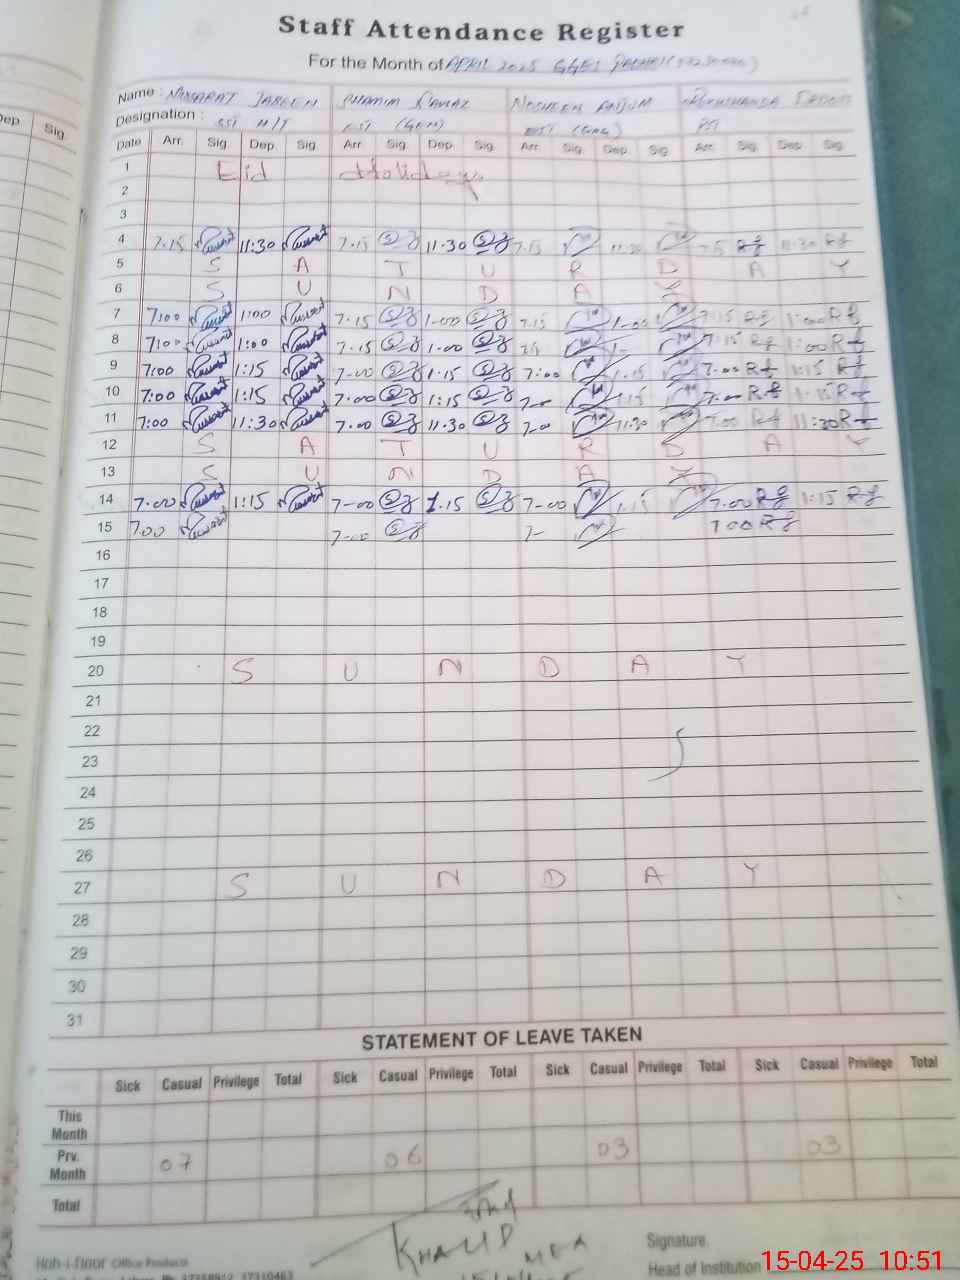 Staff Attendance Register
For the Month of APRIL 2025 GGES
Name : NUSARAT JABEEN SHAMIM NOSHEEN ANJUM
Designation : SST EST (GEN) EST PST
Dep. Sig.
Date Arr. Sig. Dep. Sig. Arr. Sig. Dep. Sig. Arr. Sig. Dep. Sig. Arr. Sig. Dep. Sig.
1 Eid Holidays
2
3
4 7.15 11:30 7.15 11.30 7.15 11.30 7.15 11.30
5 S A T U R D A Y
6 S U N D A Y
7 7:00 1:00 7.15 1-00 7.15 1-00 7.15 1:00
8 7:00 1:00 7.15 1.00 1- 7.15 1:00
9 7:00 1:15 7-00 1.15 7:00 1.15 7.00 1:15
10 7:00 1:15 7.00 1:15 7-00 1.15 7.00 1.15
11 7:00 11:30 7.00 11.30 7-00 11.30 7.00 11:30
12 S A T U R D A Y
13 S U N D A Y
14 7.00 1:15 7-00 1.15 7-00 1.15 7.00 1:15
15 7.00 7-00 7- 7.00
16
17
18
19
20 S U N D A Y
21
22
23
24
25
26
27 S U N D A Y
28
29
30
31
STATEMENT OF LEAVE TAKEN
Sick Casual Privilege Total Sick Casual Privilege Total Sick Casual Privilege Total Sick Casual Privilege Total
This Month
Prv. Month 07 06 03 03
Total
KHALID MEA
Signature.
Head of Institution
Office Products
15-04-25 10:51